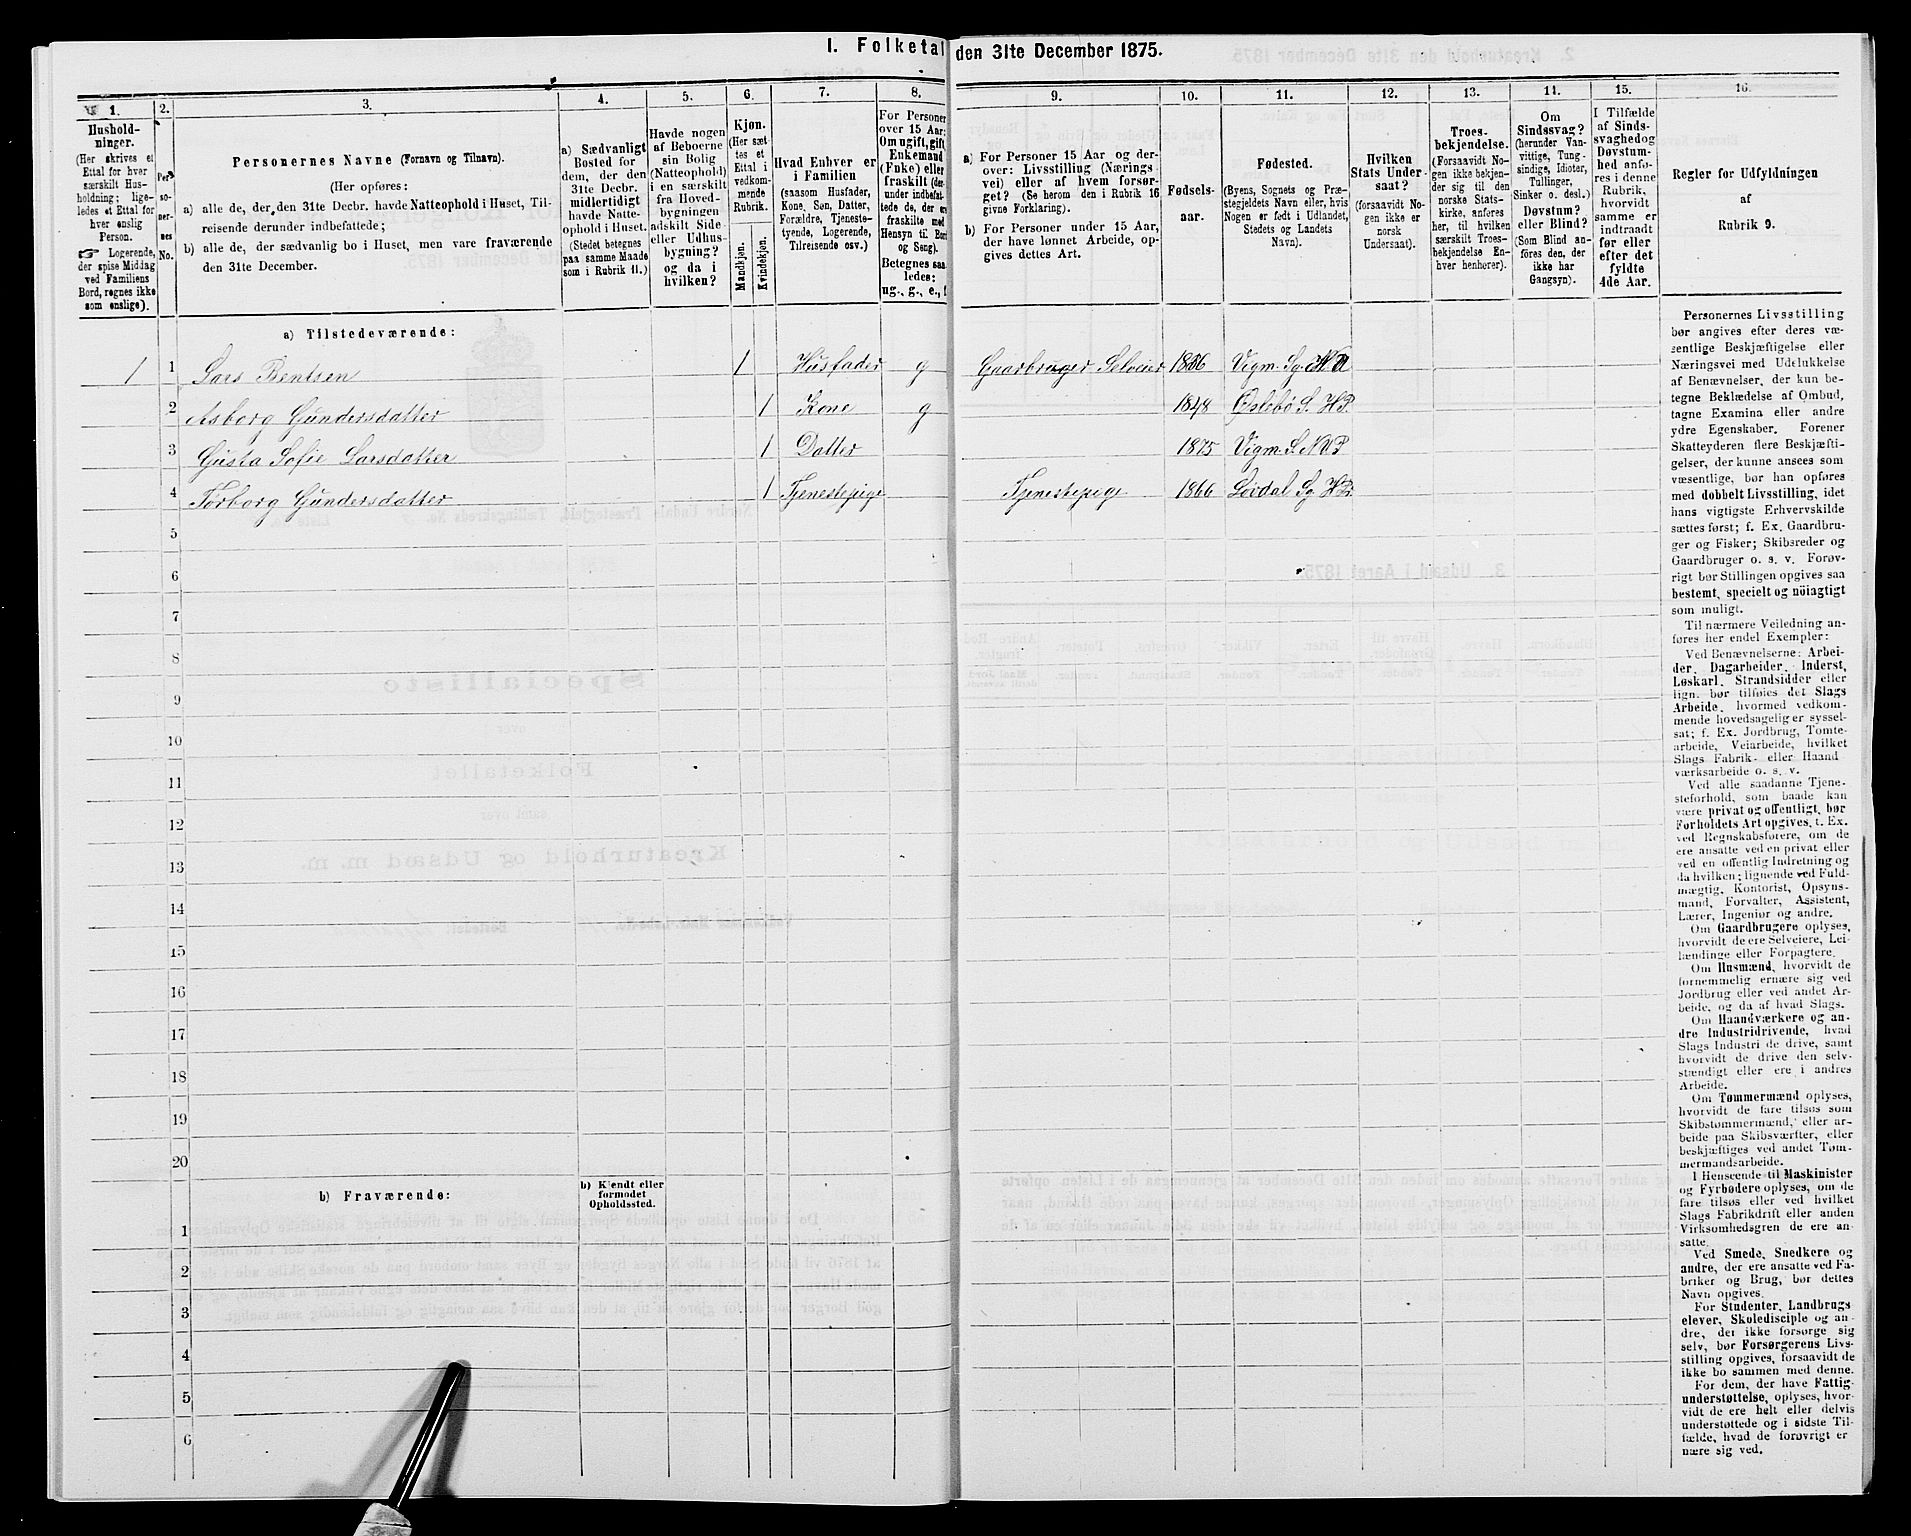 I. Folketal den 31te December 1875.
1. 2. 3. 4. 5. 6. 7. 8. 9. 10. 11. 12. 13. 14. 15. 16.
Hushold-
ninger.
(Her skrives et
Ettal for hver
særskilt Hus-
holdning; lige-
ledes et Ettal for
hver enslig
Person.
☞ Logerende,
der spise Middag
ved Familiens
Bord, regnes ikke
som enslige).
Per-
so-
ner-
nes
No.
Personernes Navne (Fornavn og Tilnavn).
(Her opføres:
a) alle de, der den 31te Decbr. havde Natteophold i Huset, Til-
reisende derunder indbefattede;
b) alle de, der sædvanlig bo i Huset, men vare fraværende
den 31te December.
a) Sædvanligt
Bosted for
dem, der den
31te Decbr.
midlertidigt
havde Natte-
ophold i Huset.
(Stedet betegnes
paa samme Maade
som i Rubrik 11.)
Havde nogen
af Beboerne
sin Bolig
(Natteophold)
i en særskilt
fra Hoved-
bygningen
adskilt Side-
eller Udhus-
bygning?
og da i
hvilken?
Kjøn.
(Her sæt-
tes et
Ettal i
vedkom-
mende
Rubrik.
Mandkjøn.
Kvindekjøn.
Hvad Enhver er
i Familien
(saasom Husfader,
Kone, Søn, Datter,
Forældre, Tjeneste-
tyende, Logerende,
Tilreisende osv.)
For Personer
over 15 Aar:
Om ugift, gift,
Enkemand
(Enke) eller
fraskilt (der-
under indbefat-
tede de, der ere
fraskilte med
Hensyn til Bord
og Seng).
Betegnes saa-
ledes:
ug., g., e., f.
a) For Personer 15 Aar og der-
over: Livsstilling (Nærings
vei) eller af hvem forsør-
get? (Se herom den i Rubrik 16
givne Forklaring).
b) For Personer under 15 Aar,
der have lønnet Arbeide, op-
gives dettes Art.
Fødsels-
aar.
Fødested.
(Byens, Sognets og Præ-
stegjeldets Navn eller, hvis
Nogen er født i Udlandet,
Stedets og Landets
Navn).
Hvilken
Stats Under-
saat?
(forsaavidt No-
gen ikke er
norsk
Undersaat).
Troes-
bekjendelse.
(Forsaavidt No-
gen ikke bekjen-
der sig til den
norske Stats-
kirke, anføres
her, til hvilken
særskilt Troes-
bekjendelse En-
hver henhører).
Om
Sindssvag?
(herunder Van-
vittige, Tung-
sindige, Idioter,
Tullinger,
Sinker o. desl.)
Døvstum?
eller Blind?
(Som Blind an-
føres den, der
ikke har
Gangsyn).
I Tilfælde
af Sinds-
svaghed og
Døvstum-
hed anfø-
res i denne
Rubrik,
hvorvidt
samme er
indtraadt
før eller
efter det
fyldte
4de Aar.
Regler for Udfyldningen
af
Rubrik 9.
a) Tilstedeværende:
1 1 Lars Bentsen 1 Husfader g Gaardbruger Selveier Vigm. Sg
2 Asborg Gundersdatter 1 Kone g 1848 Øslebö S. H.P.
3 Gusta Sofie Larsdatter 1 Datter 1875 Vigm. S. N U P
4 Torborg Gundersdatter 1 Tjenestepige Tjenestepige 1866 Sg H Pr.
5
6
7
8
9
10
11
12
13
14
15
16
17
18
19
20
b) Fraværende:
b) Kjendt eller
formodet
Opholdssted.
1
2
3
4
5
6
Personernes Livsstilling
bør angives efter deres væ-
sentlige Beskjæftigelse eller
Næringsvei med Udelukkelse
af Benævnelser, der kun be-
tegne Beklædelse af Ombud,
tagne Examina eller andre
ydre Egenskaber. Forener
Skatteyderen flere Beskjæfti-
gelser, der kunne ansees som
væsentlige, bør han opføres
med dobbelt Livsstilling, idet
hans vigtigste Erhvervskilde
sættes først; f. Ex. Gaardbru-
ger og Fisker; Skibsreder og
Gaardbruger o. s. v. Forøv-
rigt bør Stillingen opgives saa
bestemt, specielt og nöiagtigt
som muligt.
Til nærmere Veiledning an-
føres her endel Exempler:
Ved Benævnelserne: Arbei-
der, Dagarbeider, Inderst,
Løskarl, Strandsidder eller
lign. bør tilføies det Slags
Arbeide, hvormed vedkom-
mende hovedsagelig er syssel-
sat; f. Ex. Jordbrug, Tomte-
arbeide, Veiarbeide, hvilket
Slags Fabrik- eller Haand
værksarbeide o. s. v.
Ved alle saadanne Tjene-
steforhold, som baade kan
være privat og offentligt, bør
Forholdets Art opgives, t. Ex.
ved Regnskabsførere, om de
ere ansatte ved en privat eller
ved en offentlig Indretning og
da hvilken; lignende ved Fuld-
mægtig, Kontorist, Opsyns-
mand, Forvalter, Assistent,
Lærer, Ingeniør og andre.
Om Gaardbrugere oplyses,
hvorvidt de ere Selveiere, Lei-
lændinge eller Forpagtere.
Om Husmænd, hvorvidt de
fornemmelig ernære sig ved
Jordbrug eller ved andet Ar-
beide, og da af hvad Slags.
Om Haandværkere og an-
dre Industridrivende, hvad
Slags Industri de drive, samt
hvorvidt de drive den selv-
stændigt eller ere i andres
Arbeide.
Om Tømmermænd oplyses,
hvorvidt de fare tilsøs som
Skibstømmermænd, eller ar-
beide paa Skibsværfter, eller
beskjæftiges ved andet Tøm-
mermandsarbeide.
I Henseende til Maskinister
og Fyrbødere oplyses, om de
fare tilsøs eller ved hvilket
Slags Fabrikdrift eller anden
Virksomhedsgren de ere an-
satte.
Ved Smede, Snedkere og
andre, der ere ansatte ved Fa-
briker og Brug, bør dettes
Navn opgives.
For Studenter, Landbrugs
elever, Skoledisciple og an-
dre, der ikke forsørge sig
selv, bør Forsørgerens Livs-
stilling opgives, forsaavidt de
ikke bo sammen med denne.
For dem, der have Fattig-
understøttelse, oplyses, hvor-
vidt de ere helt eller delvis
understøttede og i sidste Til-
fælde, hvad de forøvrigt er
nære sig ved.